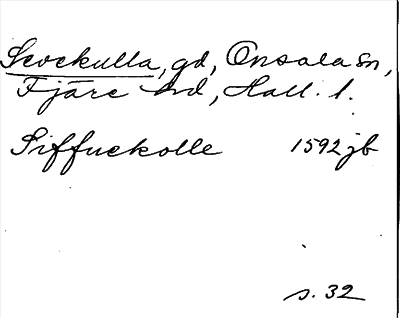 Scockulla, gd, Onsala sn,
Fjäre hd, Hall. l.
Siffuekolle 1592 jb
s. 32